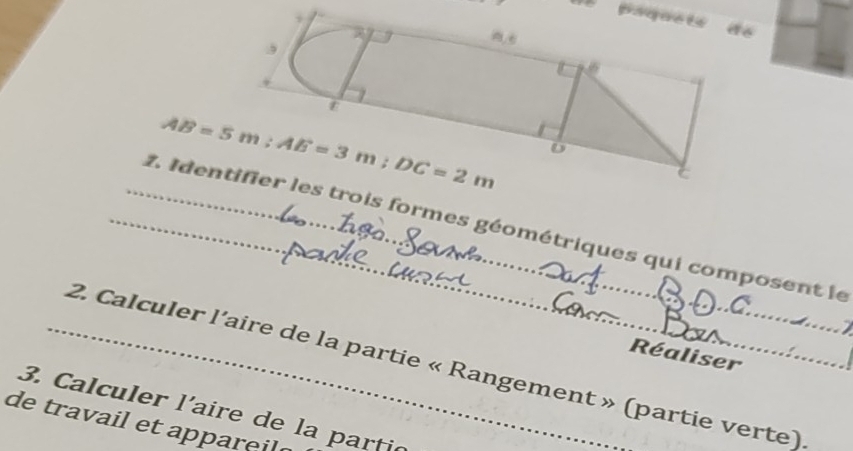 paquets de
3
A
B
E
D
C
AB = 5 m ; AE = 3 m ; DC = 2 m
1. Identifier les trois formes géométriques qui composent le
les trois formes sont B.D.C
partie
Réaliser
2. Calculer l'aire de la partie « Rangement » (partie verte).
3. Calculer l'aire de la partie
de travail et appareils